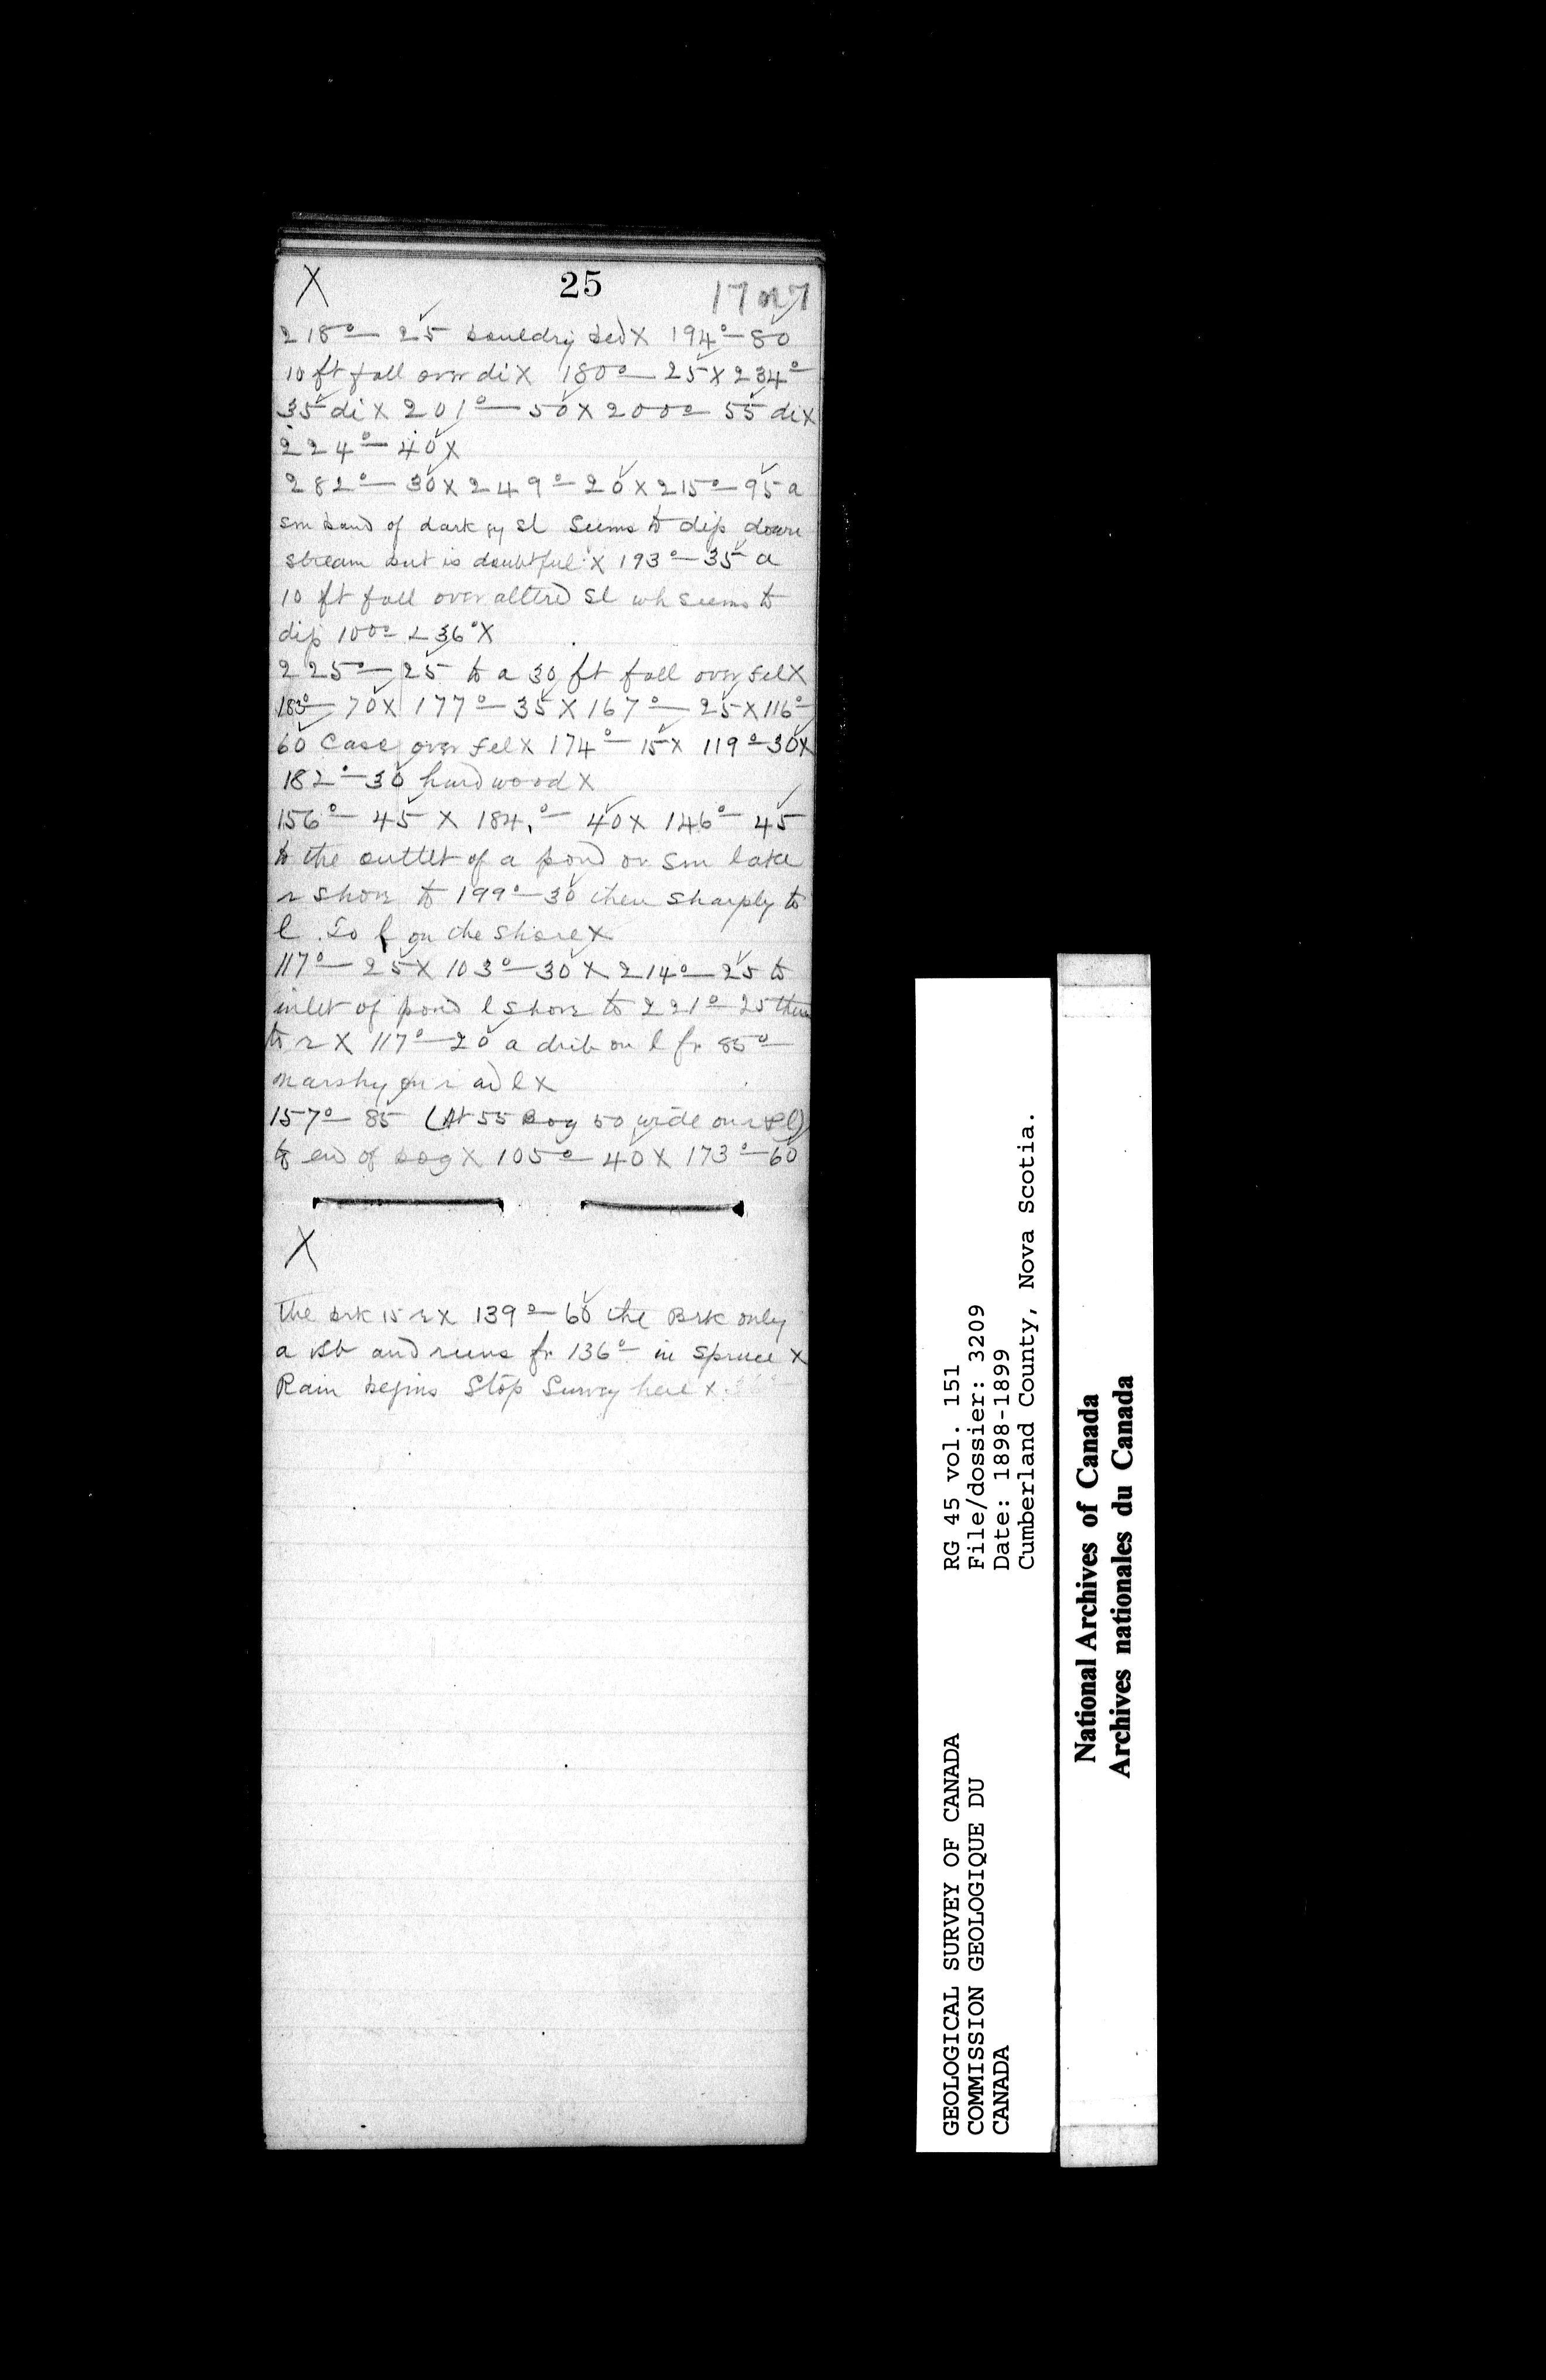 X 25 17
218° — 25 bouldry bed X 194° — 80
10 ft fall over di X 180° — 25 X 234° —
35 di X 201° — 50 X 200° — 55 di X
224° — 40 X
282° — 30 X 249° — 20 X 215° — 95 a
sm band of dark gy sl Seems to dip down
stream but is doubtful X 193° — 35 a
10 ft fall over altered sl wh seems to
dip 100° ∠ 36° X
225° — 25 to a 30 ft fall over fel X
183° — 70 X 177° — 35 X 167° — 25 X 116° —
60 Casc over fel X 174° — 15 X 119° — 30 X
182° — 30 hardwood X
156° — 45 X 184° — 40 X 146° — 45
to the outlet of a pond or sm lake
r shore to 199° — 30 then sharply to
l. Go l on the shore X
117° — 25 X 103° — 30 X 214° — 25 to
inlet of pond l shore to 221° — 25 then
to r X 117° — 20 a drib on l fr 85° —
marshy on r ad l X
157° — 85 (At 55 Bog 50 wide on r & l)
to end of bog X 105° — 40 X 173° — 60
X
The brk 15 r X 139° — 60 the Brk only
a and runs fr 136° — in spruce X
Rain begins Stop Survey here X
GEOLOGICAL SURVEY OF CANADA
COMMISSION GEOLOGIQUE DU
CANADA
RG 45 vol. 151
File/dossier: 3209
Date: 1898-1899
Cumberland County, Nova Scotia.
National Archives of Canada
Archives nationales du Canada